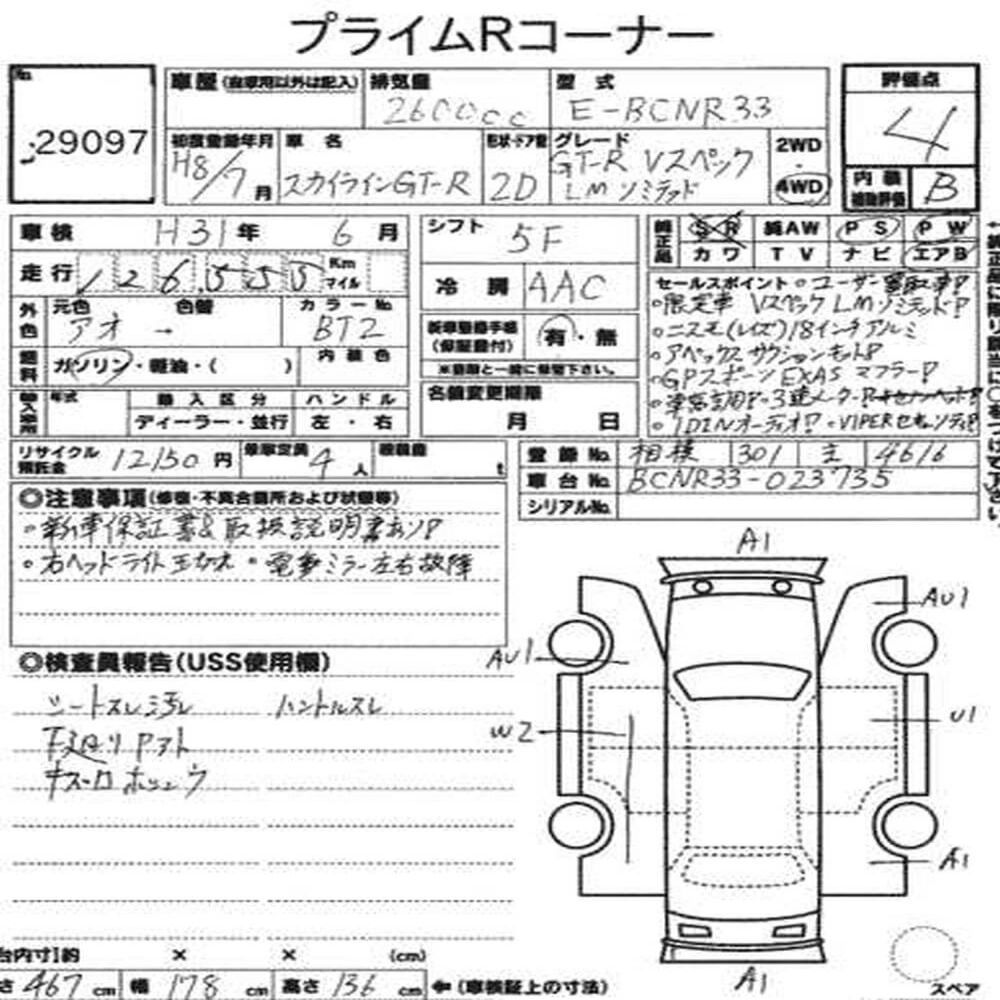 プライムRコーナー
No. 29097
車歴(自家用以外は記入) 排気量 2600cc 型式 E-BCNR33
評価点 4
初度登録年月 H8/7月 車名 スカイラインGT-R 形状・ドア数 2D グレード GT-R Vスペック LMリミテッド 2WD・4WD
内装補助評価 B
車検 H31年 6月 シフト 5F
純正品 SR 純AW PS PW
カワ TV ナビ エアB
走行 126,555 Km マイル 冷房 AAC
セールスポイント ・ユーザー買取車!
・限定車 VスペックLMリミテッド!
・ニスモ(レイズ)18インチアルミ
・アペックス サクションキット!
・GPスポーツ EXAS マフラー!
・1DINオーディオ! ・VIPERセキュリティ!
外色 元色 アオ → 色替 カラーNo. BT2
新車整備手帳(保証書付) 有・無
※書類と一緒に保管下さい。
燃料 ガソリン・軽油・( ) 内装色
名義変更期限 月 日
輸入車 年式 輸入区分 ディーラー・並行 ハンドル 左・右
リサイクル預託金 12150円 乗車定員 4人 積載量 t
登録No. 相模 301 4616
車台No. BCNR33-023735
シリアルNo.
◎注意事項(修復・不具合箇所および状態等)
・新車保証書&取扱説明書あり!
・右ヘッドライト玉切れ ・電動ミラー左右故障
◎検査員報告(USS使用欄)
シートスレ汚レ ハンドルスレ
下廻り
A1
AU1
AU1
W2
U1
A1
A1
スペア
荷台内寸 約 × × (cm)
長さ 467 cm 幅 178 cm 高さ 136 cm ←(車検証上の寸法)